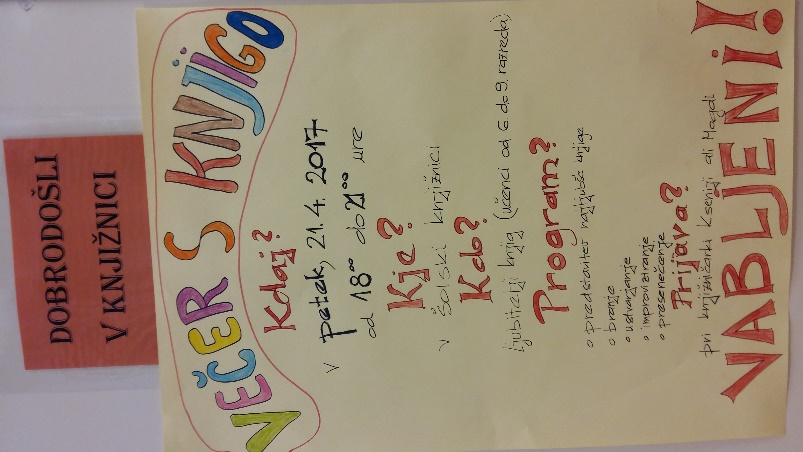 DOBRODOŠLI
V KNJIŽNICI
VEČER S KNJIGO
Kdaj?
V petek, 21.4. 2017
od 18⁰⁰ do 21⁰⁰ ure
Kje?
v šolski knjižnici
Kdo?
ljubitelji knjig (učenci od 6. do 9. razreda)
Program?
o predstavitev najljubše knjige
o branje
o ustvarjanje
o improviziranje
o presenečenje
Prijava?
pri knjižničarki Kseniji ali Magdi
VABLJENI!